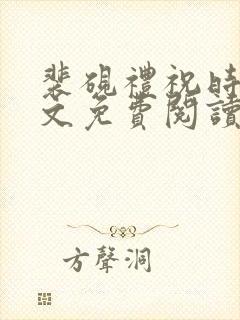 裴硯禮祝時
文免費閱讀
方聲洞